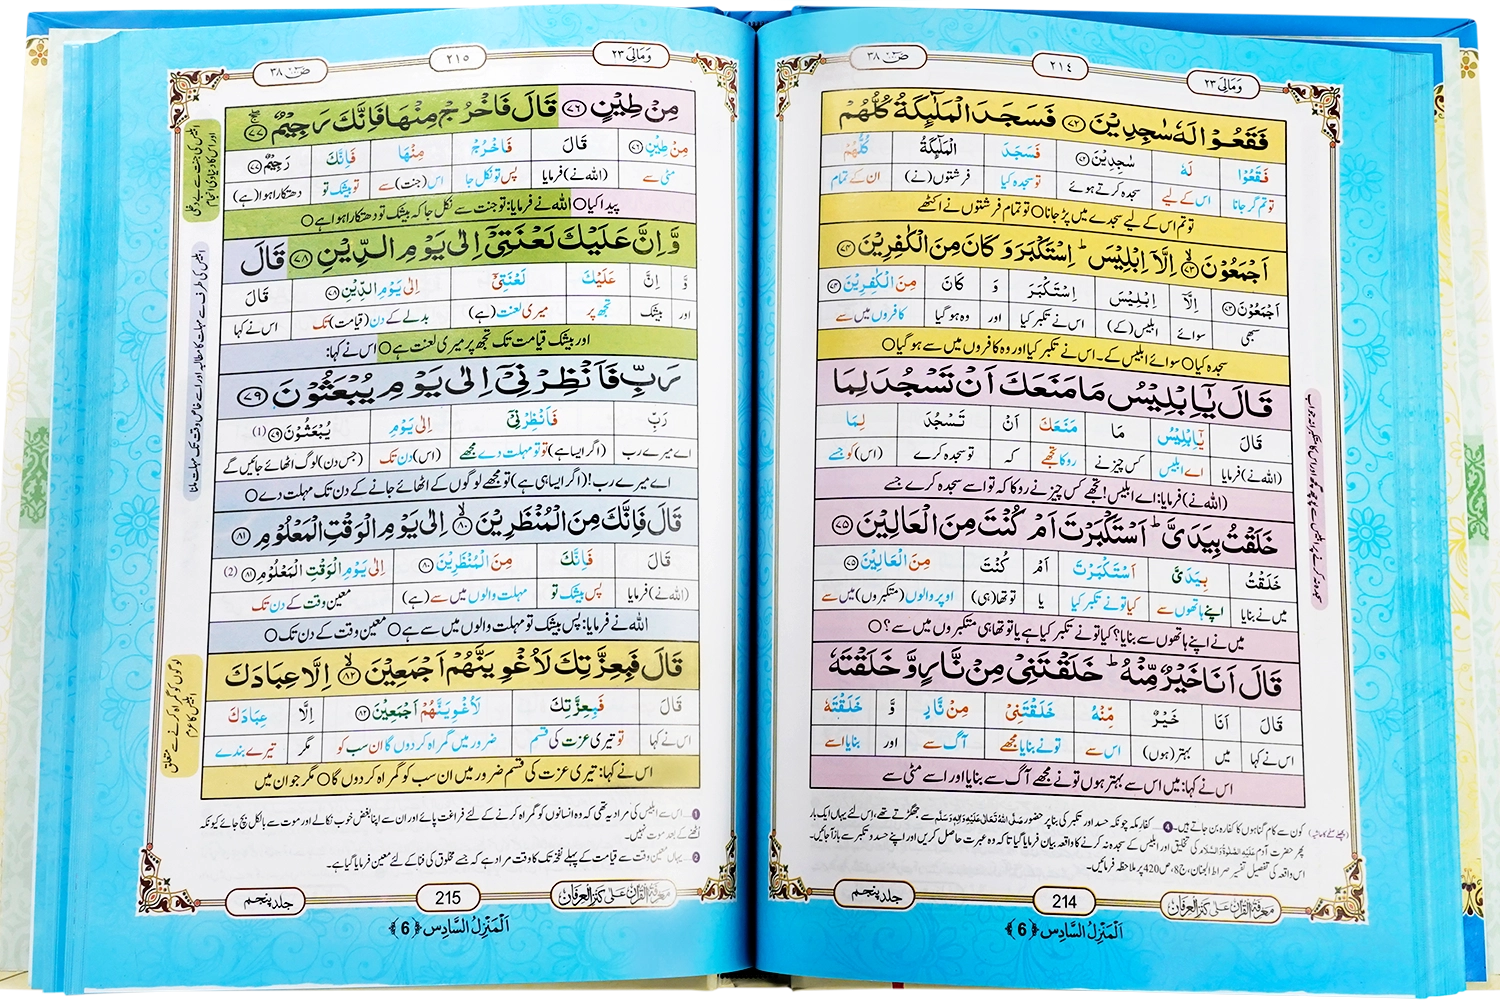 وَمَالِیَ ٢٣
٢١٤
صٓ ٣٨
فَقَعُوْا لَهٗ سٰجِدِیْنَ ﴿٧٢﴾ فَسَجَدَ الْمَلٰٓىِٕكَةُ كُلُّهُمْ
فَقَعُوْا لَهٗ سٰجِدِیْنَ ﴿٧٢﴾ فَسَجَدَ الْمَلٰٓىِٕكَةُ كُلُّهُمْ
تو تم گر جانا اس کے لیے سجدہ کرتے ہوئے تو سجدہ کیا فرشتوں (نے) ان کے تمام
تو تم اس کے لیے سجدے میں پڑ جانا○ تو تمام فرشتوں نے اکٹھے
اَجْمَعُوْنَ ﴿٧٣﴾ اِلَّاۤ اِبْلِیْسَ ؕ اِسْتَكْبَرَ وَ كَانَ مِنَ الْكٰفِرِیْنَ ﴿٧٤﴾
اَجْمَعُوْنَ ﴿٧٣﴾ اِلَّاۤ اِبْلِیْسَ اِسْتَكْبَرَ وَ كَانَ مِنَ الْكٰفِرِیْنَ ﴿٧٤﴾
سبھی سوائے ابلیس (کے) اس نے تکبر کیا اور وہ ہو گیا کافروں میں سے
سجدہ کیا○ سوائے ابلیس کے۔ اس نے تکبر کیا اور وہ کافروں میں سے ہو گیا○
قَالَ یٰۤاِبْلِیْسُ مَا مَنَعَكَ اَنْ تَسْجُدَ لِمَا
قَالَ یٰۤاِبْلِیْسُ مَا مَنَعَكَ اَنْ تَسْجُدَ لِمَا
(اللہ نے) فرمایا اے ابلیس کس چیز نے روکا تجھے کہ تو سجدہ کرے (اس) کو جسے
(اللہ نے) فرمایا: اے ابلیس! تجھے کس چیز نے روکا کہ تو اسے سجدہ کرے جسے
خَلَقْتُ بِیَدَیَّ ؕ اَسْتَكْبَرْتَ اَمْ كُنْتَ مِنَ الْعَالِیْنَ ﴿٧٥﴾
خَلَقْتُ بِیَدَیَّ اَسْتَكْبَرْتَ اَمْ كُنْتَ مِنَ الْعَالِیْنَ ﴿٧٥﴾
میں نے بنایا اپنے ہاتھوں سے کیا تو نے تکبر کیا یا تو تھا (ہی) اوپر والوں (متکبروں) میں سے
میں نے اپنے ہاتھوں سے بنایا؟ کیا تو نے تکبر کیا ہے یا تو تھا ہی متکبروں میں سے؟○
قَالَ اَنَا خَیْرٌ مِّنْهُ ؕ خَلَقْتَنِیْ مِنْ نَّارٍ وَّ خَلَقْتَهٗ
قَالَ اَنَا خَیْرٌ مِّنْهُ خَلَقْتَنِیْ مِنْ نَّارٍ وَّ خَلَقْتَهٗ
اس نے کہا میں بہتر (ہوں) اس سے تو نے بنایا مجھے آگ سے اور بنایا اسے
اس نے کہا: میں اس سے بہتر ہوں تو نے مجھے آگ سے بنایا اور اسے مٹی سے
کون سے کام گناہوں کا کفارہ بن جاتے ہیں۔ کفار مکہ چونکہ حسد اور تکبر کی بنا پر حضور صَلَّی اللہُ تَعَالٰی عَلَیْہِ وَاٰلِہٖ وَسَلَّم سے جھگڑتے تھے، اس لئے یہاں ایک بار
پھر حضرت آدم عَلَیْہِ الصَّلٰوۃُ وَالسَّلَام کی تخلیق اور ابلیس کے سجدہ نہ کرنے کا واقعہ بیان فرمایا گیا تاکہ وہ عبرت حاصل کریں اور اپنے حسد و تکبر سے باز آ جائیں۔
اس واقعہ کی تفصیل تفسیر صراط الجنان، ج8، ص420 پر ملاحظہ فرمائیں۔
معرفۃ القرآن علی کنز العرفان
214
جلد پنجم
اَلْمَنْزِلُ السَّادِس ﴿6﴾
وَمَالِیَ ٢٣
٢١٥
صٓ ٣٨
مِنْ طِیْنٍ ﴿٧٦﴾ قَالَ فَاخْرُجْ مِنْهَا فَاِنَّكَ رَجِیْمٌ ﴿٧٧﴾
مِنْ طِیْنٍ ﴿٧٦﴾ قَالَ فَاخْرُجْ مِنْهَا فَاِنَّكَ رَجِیْمٌ ﴿٧٧﴾
مٹی سے (اللہ نے) فرمایا پس تو نکل جا اس (جنت) سے تو بیشک تو دھتکارا ہوا (ہے)
پیدا کیا○ اللہ نے فرمایا: تو جنت سے نکل جا کہ بیشک تو دھتکارا ہوا ہے○
وَّ اِنَّ عَلَیْكَ لَعْنَتِیْۤ اِلٰى یَوْمِ الدِّیْنِ ﴿٧٨﴾ قَالَ
وَّ اِنَّ عَلَیْكَ لَعْنَتِیْۤ اِلٰى یَوْمِ الدِّیْنِ ﴿٧٨﴾ قَالَ
اور بیشک تجھ پر میری لعنت (ہے) بدلے کے دن (قیامت) تک اس نے کہا
اور بیشک قیامت تک تجھ پر میری لعنت ہے○ اس نے کہا:
رَبِّ فَاَنْظِرْنِیْۤ اِلٰى یَوْمِ یُبْعَثُوْنَ ﴿٧٩﴾
رَبِّ فَاَنْظِرْنِیْۤ اِلٰى یَوْمِ یُبْعَثُوْنَ ﴿٧٩﴾ (1)
اے میرے رب (اگر ایسا ہے) تو تو مہلت دے مجھے (اس) دن تک (جس دن) لوگ اٹھائے جائیں گے
اے میرے رب! (اگر ایسا ہی ہے) تو مجھے لوگوں کے اٹھائے جانے کے دن تک مہلت دے○
قَالَ فَاِنَّكَ مِنَ الْمُنْظَرِیْنَ ﴿٨٠﴾ اِلٰى یَوْمِ الْوَقْتِ الْمَعْلُوْمِ ﴿٨١﴾
قَالَ فَاِنَّكَ مِنَ الْمُنْظَرِیْنَ ﴿٨٠﴾ اِلٰى یَوْمِ الْوَقْتِ الْمَعْلُوْمِ ﴿٨١﴾ (2)
(اللہ نے) فرمایا پس بیشک تو مہلت والوں میں سے (ہے) معین وقت کے دن تک
اللہ نے فرمایا: پس بیشک تو مہلت والوں میں سے ہے○ معین وقت کے دن تک○
قَالَ فَبِعِزَّتِكَ لَاُغْوِیَنَّهُمْ اَجْمَعِیْنَ ﴿٨٢﴾ اِلَّا عِبَادَكَ
قَالَ فَبِعِزَّتِكَ لَاُغْوِیَنَّهُمْ اَجْمَعِیْنَ ﴿٨٢﴾ اِلَّا عِبَادَكَ
اس نے کہا تو تیری عزت کی قسم ضرور میں گمراہ کر دوں گا ان سب کو مگر تیرے بندے
اس نے کہا: تیری عزت کی قسم ضرور میں ان سب کو گمراہ کر دوں گا○ مگر جو ان میں
1 ...اس سے ابلیس کی مراد یہ تھی کہ وہ انسانوں کو گمراہ کرنے کے لئے فراغت پائے اور ان سے اپنا بغض خوب نکالے اور موت سے بالکل بچ جائے کیونکہ
اٹھنے کے بعد موت نہیں۔
2 ...یہاں معین وقت سے قیامت کے پہلے نفخہ تک کا وقت مراد ہے کہ جسے مخلوق کی فنا کے لئے معین فرمایا گیا ہے۔
معرفۃ القرآن علی کنز العرفان
215
جلد پنجم
اَلْمَنْزِلُ السَّادِس ﴿6﴾